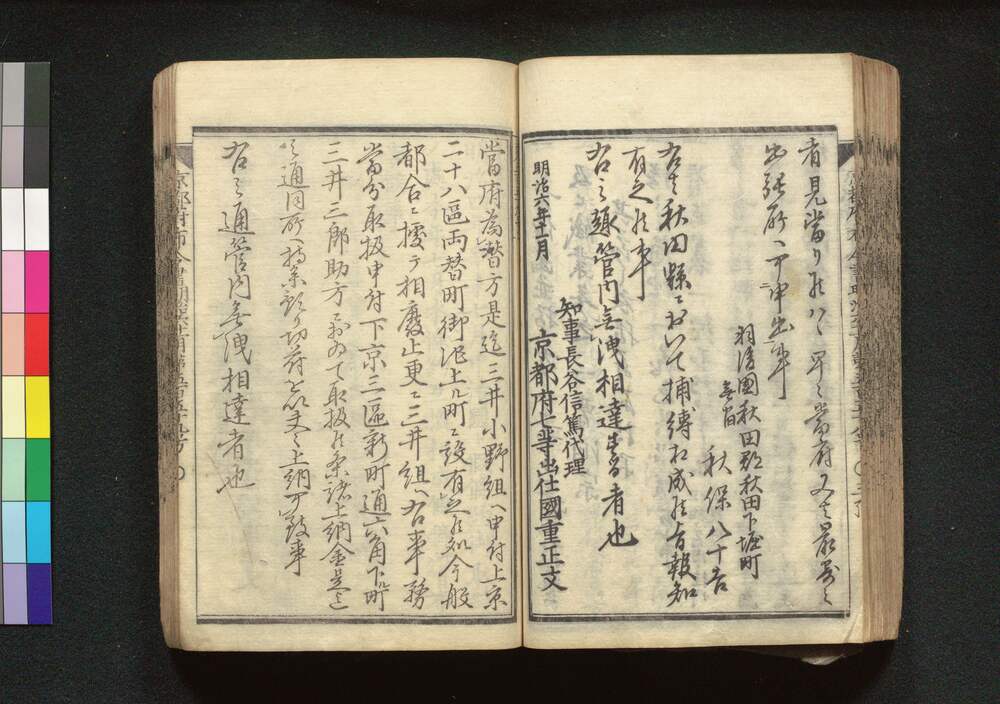 者見當り候ハヽ早々當府又ハ最寄之
出張所へ可申出事
羽後國秋田郡秋田下堀町
秋保八十吉
右者秋田縣ニおいて捕縛相成候旨報知
有之候事
右之趣管内無洩相達する者也
明治六年十一月
知事長谷信篤代理
京都府七等出仕國重正文
當府為替方是迄三井小野組へ申付上京
二十八區両替町御池上ル町ニ設有之候処今般
都合ニ據テ相廢止更ニ三井組へ右事務
當分取扱申付下京三區新町通六角下ル町
三井三郎助方ニおゐて取扱候条諸上納金是迄
之通同所へ持参預り切符を以夫々上納可致事
右之通管内無洩相達者也